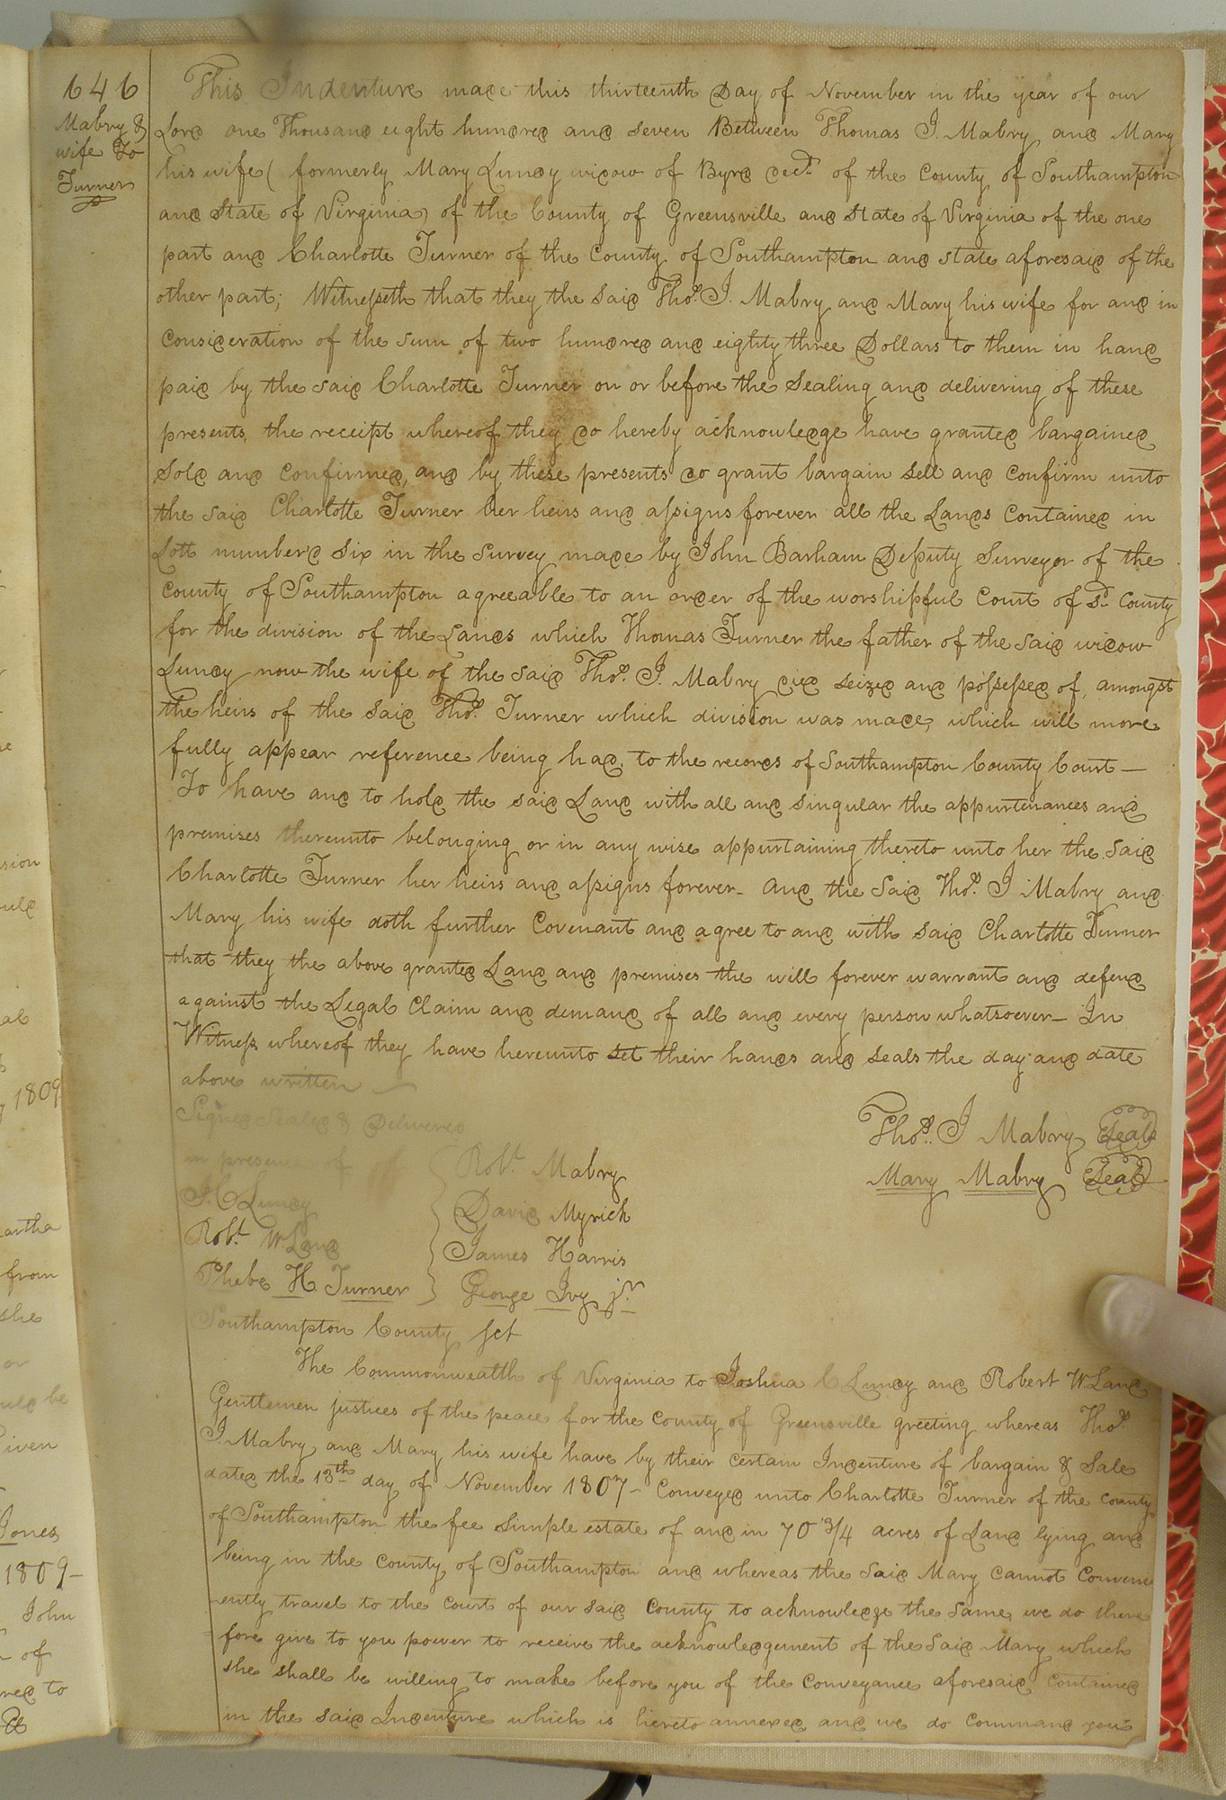 646
Mabry &
wife To
Turner
This Indenture made this thirteenth Day of November in the year of our
Lord one Thousand eight hundred and seven Between Thomas J. Mabry and Mary
his wife ( formerly Mary Lundy widow of Byrd decd. of the County of Southampton
and State of Virginia) of the County of Greensville and State of Virginia of the one
part and Charlotte Turner of the County of Southampton and state aforesaid of the
other part; Witnesseth that they the said Thos. J. Mabry and Mary his wife for and in
consideration of the sum of two hundred and eighty three Dollars to them in hand
paid by the said Charlotte Turner on or before the Sealing and delivering of these
presents, the receipt whereof they do hereby acknowledge have granted bargained
Sold and confirmed, and by these presents do grant bargain sell and confirm unto
the said Charlotte Turner her heirs and assigns forever all the Lands Contained in
Lott numberd Six in the Survey made by John Barham Deputy Surveyor of the
County of Southampton agreeable to an order of the worshipful Court of Sd. County
for the division of the Lands which Thomas Turner the father of the said widow
Lundy now the wife of the said Thos. J. Mabry died seized and possessed of, amongst
the heirs of the said Thos. Turner which division was made, which will more
fully appear reference being had to the records of Southampton County Court—
To have and to hold the said Land with all and singular the appurtenances and
premises thereunto belonging or in any wise appurtaining thereto unto her the said
Charlotte Turner her heirs and assigns forever- and the said Thos. J Mabry and
Mary his wife doth further Covenant and agree to and with said Charlotte Turner
that they the above granted Land and premises the will forever warrant and defend
against the Legal Claim and demand of all and every person whatsoever— In
Witness whereof they have hereunto set their hands and seals the day and date
above written —
Signed Sealed & Delivered
in presence of
J. C Lundy
Robt. W Land
Phebe H Turner
Robt. Mabry
David Myrick
James Harris
George Ivy jr.
Thos. J Mabry Seal
Mary Mabry Seal
Southampton County sct
The Commonwealth of Virginia to Joshua C Lundy and Robert W Land
Gentlemen justices of the peace for the County of Greensville greeting whereas Thos.
J Mabry and Mary his wife have by their certain Indenture of bargain & Sale
dated the 13th day of November 1807- Conveyed unto Charlotte Turner of the County
of Southampton the fee simple estate of and in 70 3/4 acres of Land lying and
being in the County of Southampton and whereas the said Mary Cannot Conveni
ently travel to the Court of our said County to acknowledge the same, we do there
fore give to you power to receive the acknowledgement of the said Mary which
she shall be willing to make before you of the Conveyance aforesaid Contained
in the said Indenture which is hereto annexed and we do command you
sion
ould
al
1809
artha
from
she
or
ould be
Given
Jones
1809-
John
of
red to